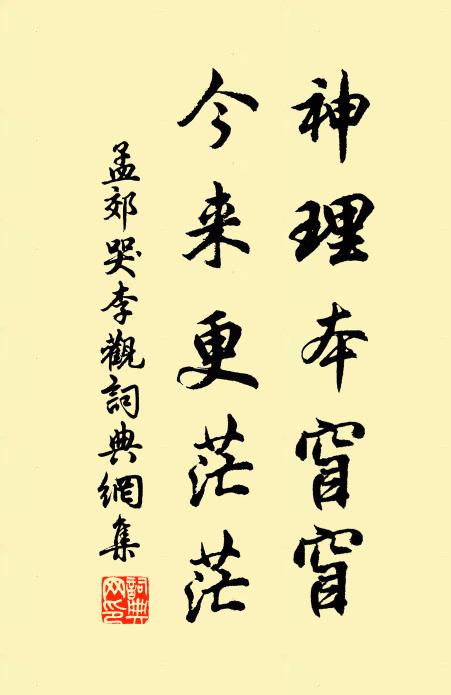 神理本窅窅
今来更茫茫
孟郊哭李觀詞典網集
詞典
网印